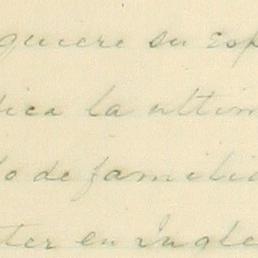 quiere su esp
ica la ultim
o de familia
ter en ingle